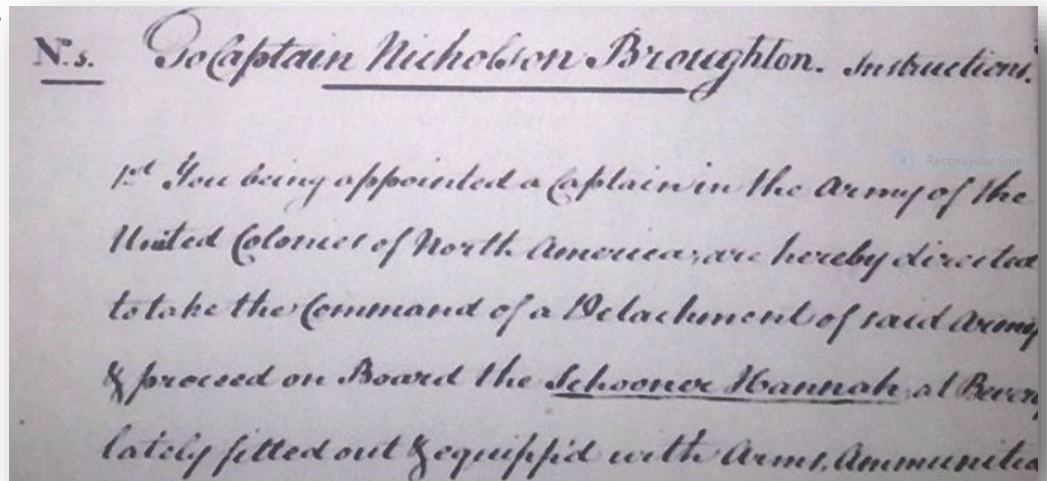 No. 5. To Captain Nicholson Broughton. Instructions.
Rectangular Snip
1st You being appointed a Captain in the Army of the
United Colonies of North America, are hereby directed
to take the Command of a Detachment of said Army
& proceed on Board the Schooner Hannah, at Bever
lately fitted out & equipp'd with Arms, Ammunitio